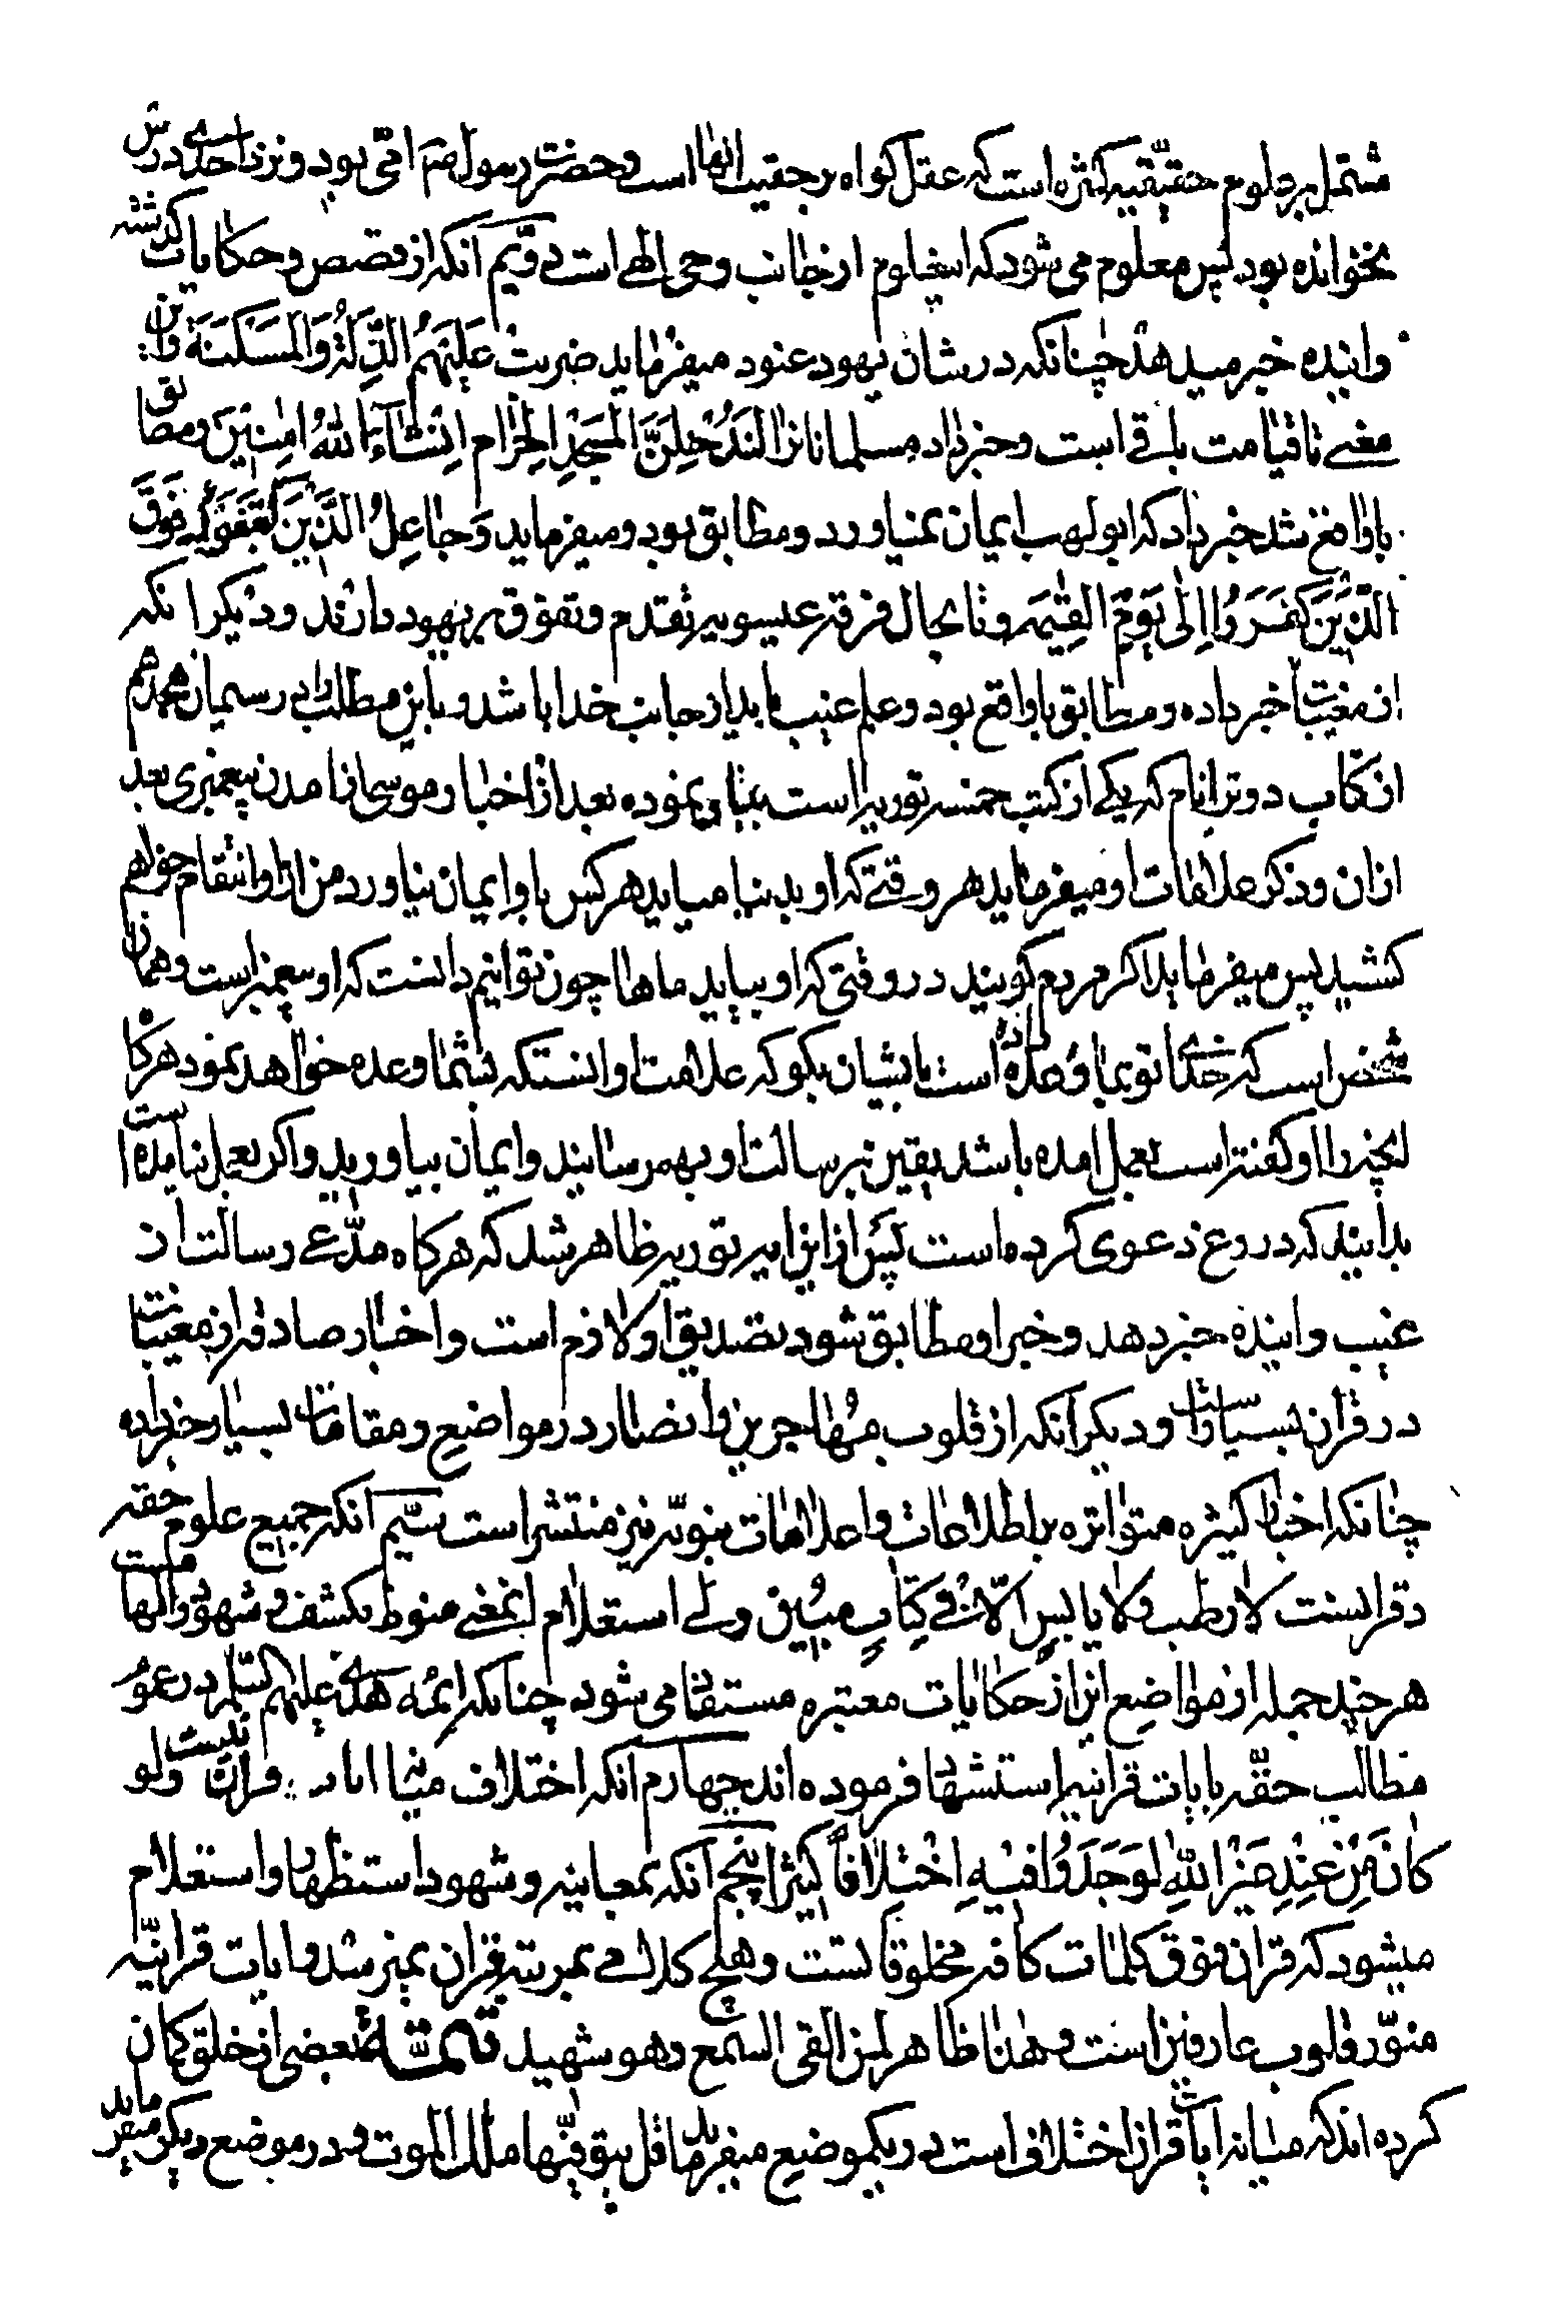 مشتمل بر علوم حقیقیه کثیره است که عقل کواه بر حقیت انها است و حضرت رسول ص امّی بود و نزد احدی درس
نخوانده بود پس معلوم می شود که اینعلوم از جانب وحی الهی است دویّم آنکه از قصص و حکایات گذشته
و اینده خبر میدهد چنانکه در شان یهود عنود میفرماید ضربت علیهم الذّلة والمسکنة و این
معنی تا قیامت باقی است و خبر داد مسلمانانرا لتدخلنّ المسجد الحرام انشاءالله امنین و مطابق
با واقع شد خبر داد که ابولهب ایمان نمیاورد و مطابق بود و میفرماید وجاعل الذین اتبعوک فوق
الذین کفروا الی یوم القیمه و تا بحال فرقه عیسویه تقدم و تفوق بر یهود دارند و دیکر انکه
از مغیبات خبر داده و مطابق با واقع بود و علم غیب باید از جانب خدا باشد و باین مطلب در سیمان هجدهم
از کتاب دوترانام که یکی از کتب خمسه توریه است بیان نموده بعد از اخبار موسی از امدن پیغمبری بعد
از ان و ذکر علامات او میفرماید هر وقتی که او بدنیا میاید هر کس باو ایمان نیاورد من از او انتقام خواهم
کشید پس میفرماید اکر مردم کویند در وقتی که او بیاید ماها چون توانیم دانست که او پیغمبر است و همان
شخص است که خدا تو بما وعده داده است بایشان بکو که علامت او اینستکه بشما وعده خواهد نمود هرکاه
انچه را او کفته است بعمل امده باشد یقین برسالت او بهمرسانید و ایمان بیاورید و اکر بعمل نیامده است
بدانید که دروغ دعوی کرده است پس از این ایه توریه ظاهر شد که هرکاه مدّعی رسالت از
غیب و اینده خبر دهد و خبر او مطابق شود تصدیق او لازم است و اخبار صادقه از مغیبات
در قران بسیار است و دیکر آنکه از قلوب مهاجرین و انصار در مواضع و مقامات بسیار خبر داده
چنانکه اخبار کثیره متواتره بر اطلاعات و اعلامات نبویّه نیز منتشر است سیّم آنکه جمیع علوم حقه
در قرانست لا رطب ولا یابس الّا فی کتاب مبین ولی استعلام اینمعنی منوط بکشف و شهود و الهامست
هر چند جمله از مواضع ان از حکایات معتبره مستفاد می شود چنانکه ائمه هدی علیهم السلم در عموم
مطالب حقّه بایات قرانیه استشهاد فرموده اند چهارم آنکه اختلاف میان ایات قران نیست ولو
کان من عند غیر الله لوجدوا فیه اختلافا کثیرا پنجم آنکه بمعاینه و شهود استظهار و استعلام
میشود که قران فوق کلمات کافه مخلوقاتست و هیچ کلامی بمرتبه قران نمیرسد و ایات قرانیّه
منوّر قلوب عارفین است و هذا ظاهر لمن القی السمع وهو شهید تمتّه بعضی از خلق کمان
کرده اند که میانه ایات قران اختلاف است در یکموضع میفرماید قل یتوفّیها ملک الموت و در موضع دیکر میفرماید